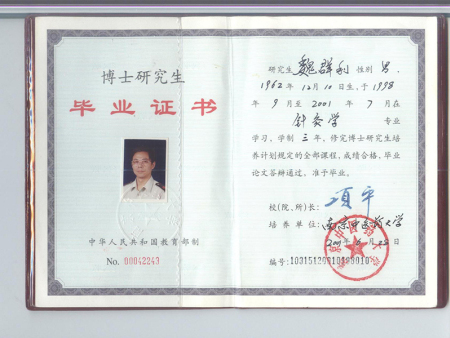 博士研究生
毕业证书
中华人民共和国教育部制
No. 00042243
研究生 魏群利 性别 男.
1962 年 12 月 10 日生,于 1998
年 9 月至 2001 年 7 月在
针灸学 专业
学习,学制 三 年,修完博士研究生培
养计划规定的全部课程,成绩合格,毕业
论文答辩通过,准予毕业。
校(院、所)长: 项平
培养单位: 南京中医药大学
2001 年 6 月 日
编号: